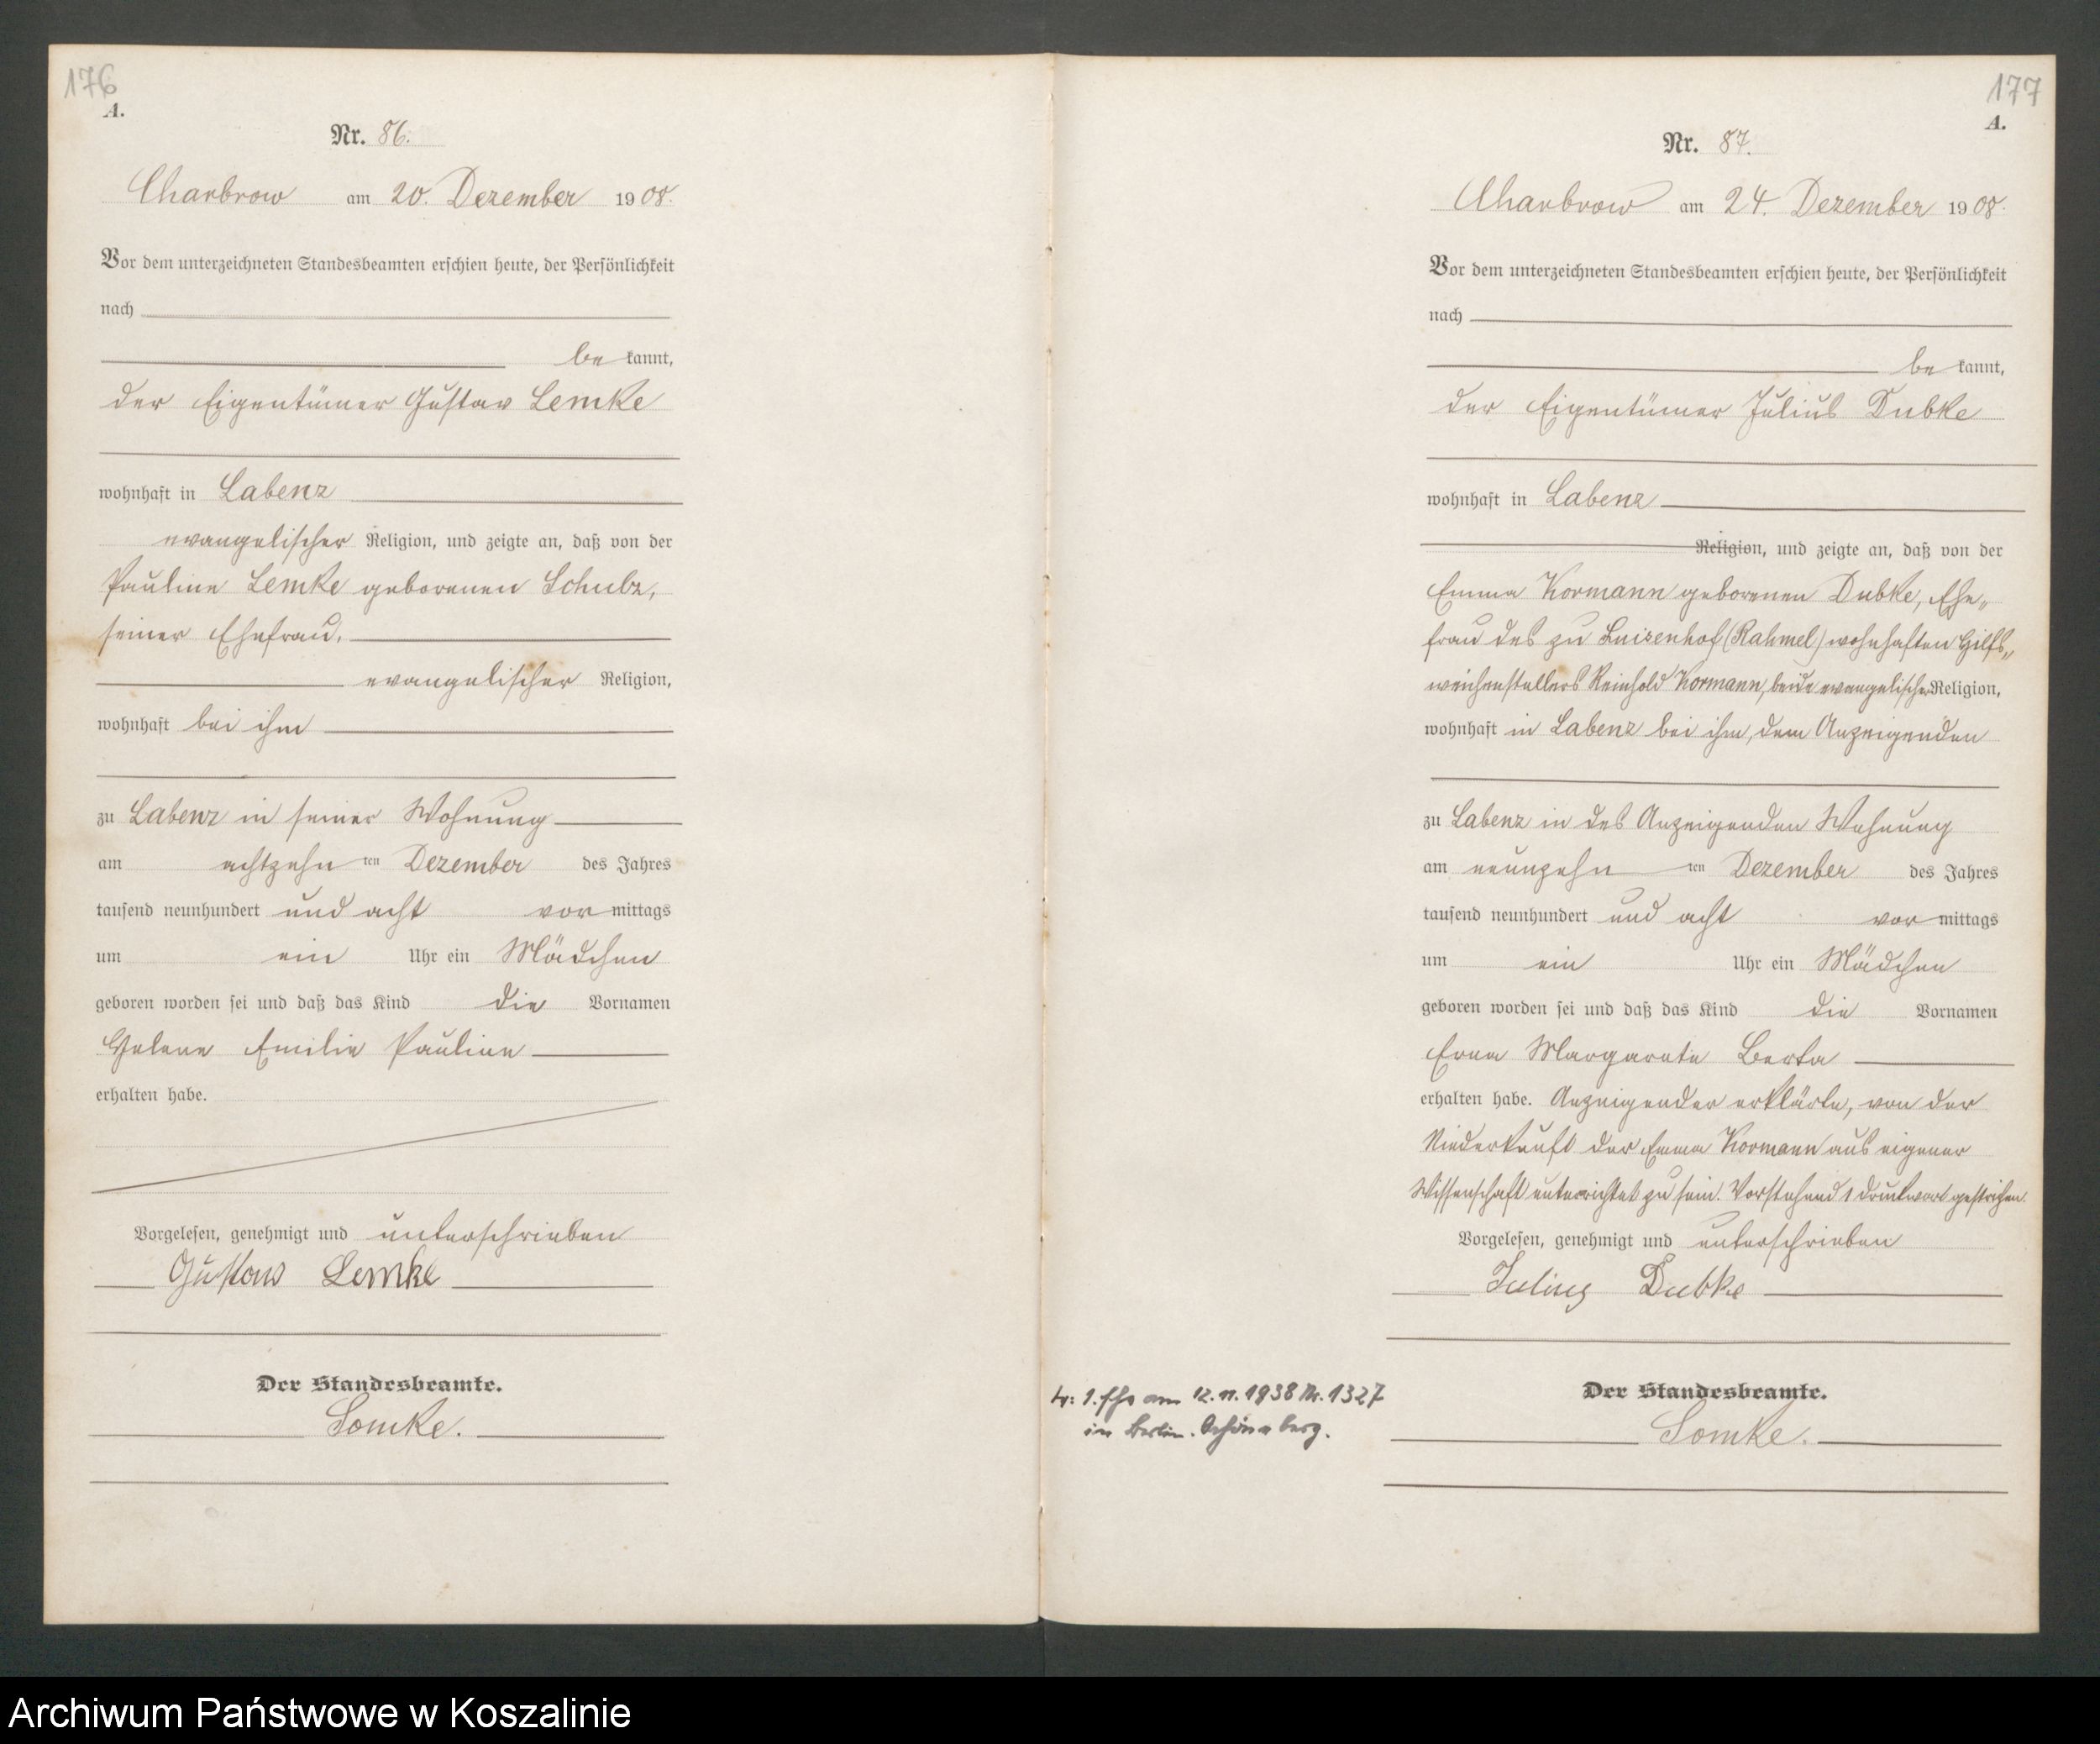 176
A.
Nr. 86.
Charbrow am 20. Dezember 1908.
Vor dem unterzeichneten Standesbeamten erschien heute, der Persönlichkeit
nach
be kannt,
der Eigentümer Gustav Lemke
wohnhaft in Labenz
evangelischer Religion, und zeigte an, daß von der
Pauline Lemke geborenen Schulz,
seiner Ehefrau,
evangelischer Religion,
wohnhaft bei ihm
zu Labenz in seiner Wohnung
am achtzehn ten Dezember des Jahres
tausend neunhundert und acht vor mittags
um ein Uhr ein Mädchen
geboren worden sei und daß das Kind die Vornamen
Helene Emilie Pauline
erhalten habe.
Vorgelesen, genehmigt und unterschrieben
Gustav Lemke
Der Standesbeamte.
Somke.
177
A.
Nr. 87.
Charbrow am 24. Dezember 1908.
Vor dem unterzeichneten Standesbeamten erschien heute, der Persönlichkeit
nach
be kannt,
der Eigentümer Julius Dubke
wohnhaft in Labenz
Religion, und zeigte an, daß von der
Emma Kormann geborenen Dubke, Ehe„
frau des zu Luisenhof (Rahmel) wohnhaften Hilfs„
weichenstellers Reinhold Kormann, beide evangelischer Religion,
wohnhaft in Labenz bei ihm, dem Anzeigenden
zu Labenz in des Anzeigenden Wohnung
am neunzehn ten Dezember des Jahres
tausend neunhundert und acht vor mittags
um ein Uhr ein Mädchen
geboren worden sei und daß das Kind die Vornamen
Erna Margarete Berta
erhalten habe. Anzeigender erklärte, von der
Niederkunft der Emma Kormann aus eigener
Wissenschaft unterrichtet zu sein. Vorstehend 1 Druckwort gestrichen.
Vorgelesen, genehmigt und unterschrieben
Julius Dubke
Der Standesbeamte.
Somke.
1. am 12.11.1938 Nr. 1327
in Berlin-Schöneberg.
Archiwum Państwowe w Koszalinie